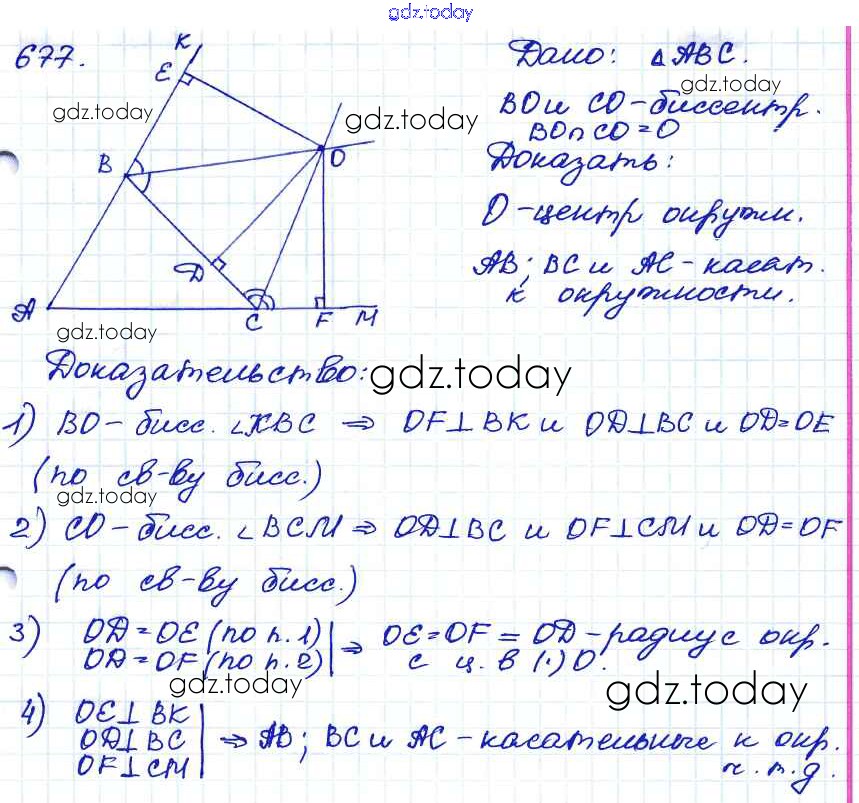 gdz.today
677.
K
E
B
O
D
A
C
F
M
gdz.today
gdz.today
Дано: △ABC.
gdz.today
BO и CO - биссектр.
BO∩CO = O
Доказать:
O - центр окружн.
AB; BC и AC - касат.
к окружности.
gdz.today
Доказательство:
gdz.today
1) BO - бисс. ∠KBC ⇒ OF⊥BK и OD⊥BC и OD=OE
(по св-ву бисс.)
gdz.today
2) CO - бисс. ∠BCM ⇒ OD⊥BC и OF⊥CM и OD=OF
(по св-ву бисс.)
3) OD = OE (по п. 1) | ⇒ OE = OF = OD - радиус окр.
OD = OF (по п. 2) | с ц. в (·) O.
gdz.today
gdz.today
4) OE⊥BK
OD⊥BC | ⇒ AB; BC и AC - касательные к окр.
OF⊥CM | ч. т. д.